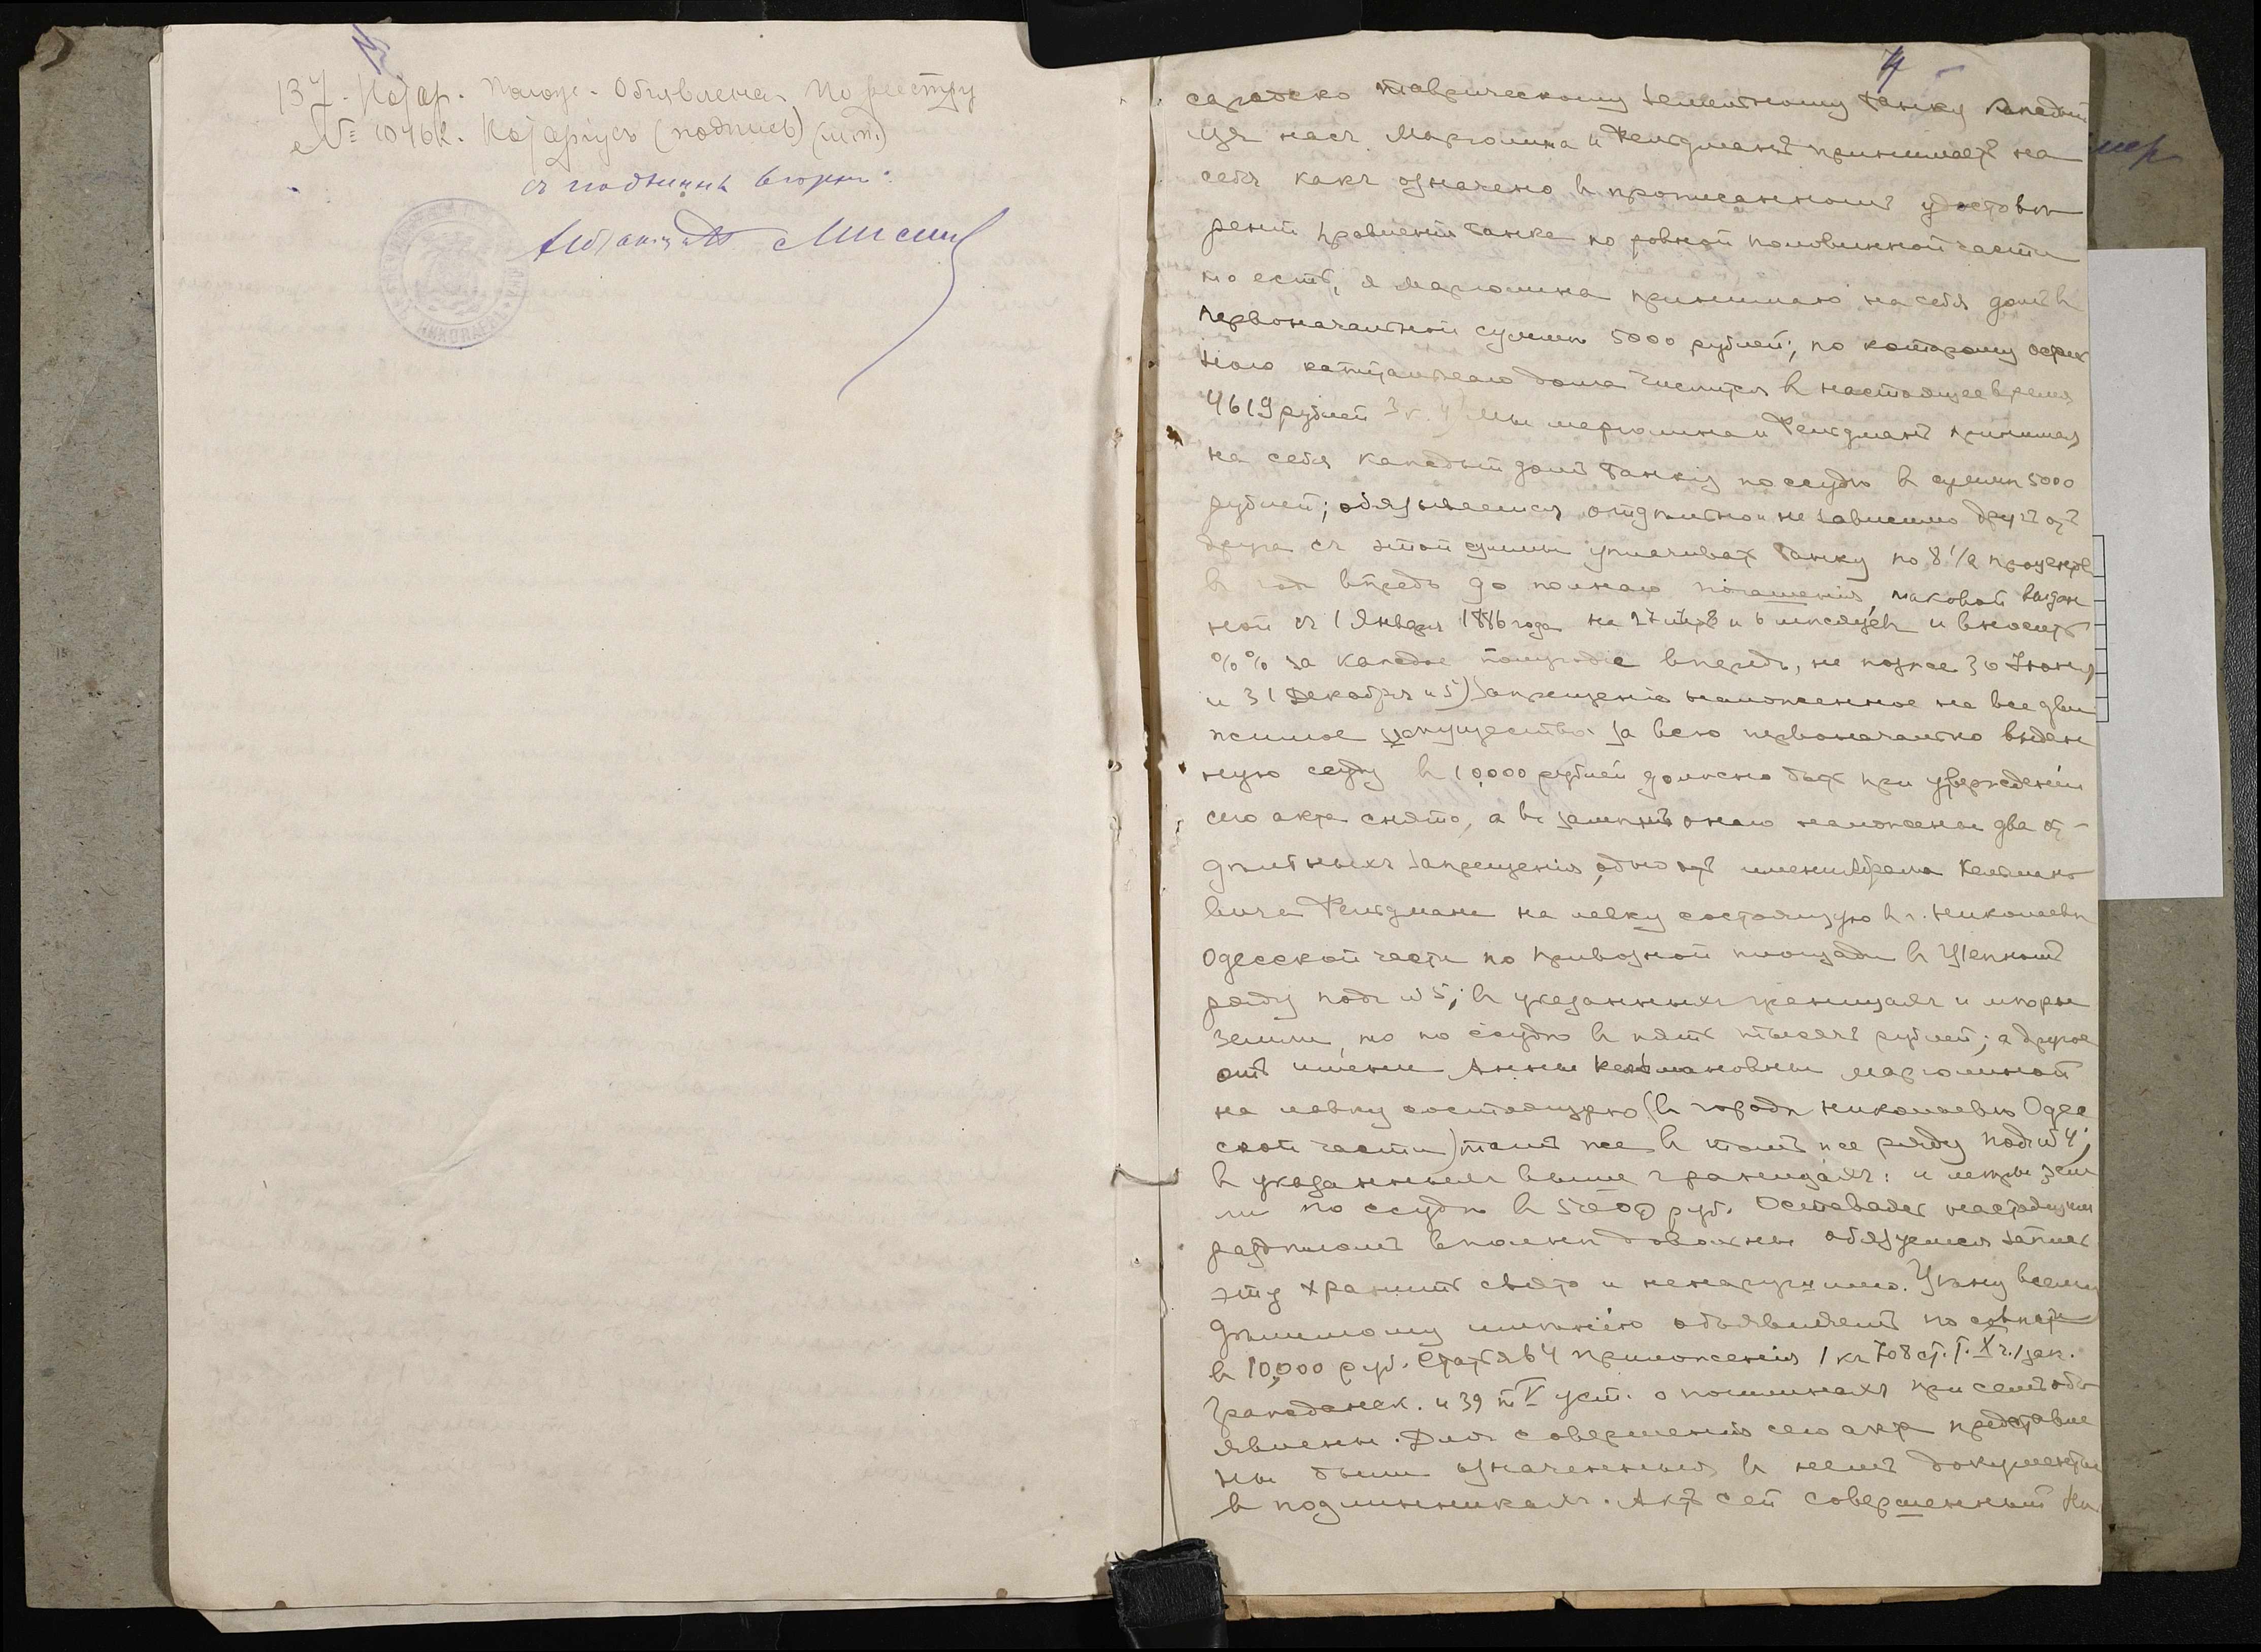 137. Нотар. Полож. Объявлена. По реестру
№ 10462. Нотаріусъ (подпись) (м.п.)
съ подлинн вѣрно:
4
сарабско таврическому земельному банку каждый
изъ насъ Марголина и Фельдманъ принимаетъ на
себя какъ означено въ прописанномъ удостовѣ
реніи правленія банка по ровной половинной части
то есть, я Марголина принимаю на себя долгъ въ
первоначальной суммѣ 5000 рублей; по которому
капитальнаго долга числится въ настоящее время
4619 рублей 3 к. 4) Мы Марголина и Фельдманъ принимая
на себя каждый долгъ банку по ссудѣ въ суммѣ 5000
рублей; обязываемся отдѣльно и не зависимо другъ отъ
друга съ этой суммы уплачивать банку по 8 1/2 процентовъ
въ годъ впредь до полнаго погашенія, таковой выдан
ной съ 1 Января 1886 года на 27 лѣтъ и 6 мѣсяцевъ и вносить
%% за каждое полугодіе впередъ, не позже 30 Іюня
и 31 Декабря и 5) Запрещеніе наложенное на все дви
жимое имущество за всю первоначально выдан
ную ссуду въ 10,000 рублей должно быть при утвержденіи
сего акта снято, а въ замѣнъ онаго наложены два от-
дѣльныхъ запрещенія, одно отъ имени Абрама Кельмано
вича Фельдмана на лавку состоящую въ г. Николаевѣ
Одесской части по привозной площади въ
ряду подъ № 5; въ указанныхъ границахъ и мѣры
земли, то по ссудѣ въ пять тысячъ рублей; а другое
отъ имени Анны Кельмановны Марголиной
на лавку состоящую (въ городѣ Николаевѣ Одес
ской части) тамъ же въ томъ же ряду подъ № 4;
въ указанныхъ выше границахъ: и мѣры зем
ли по ссудѣ въ 5000 руб. Оставаясь настоящимъ
раздѣломъ вполнѣ довольны обязуемся запись
эту хранить свято и ненарушимо. Цѣну всему
дѣлимому имѣнію объявляемъ по совѣсти
въ 10,000 руб. Статья 4 приложенія 1 къ 708 ст. Т. X ч. 1 зак.
Гражданск. и 39 т V уст. о пошлинахъ при семъ объ
явлены. Для совершенія сего акта представле
ны были означенныя въ немъ документы
въ подлинникахъ. Актъ сей совершенный